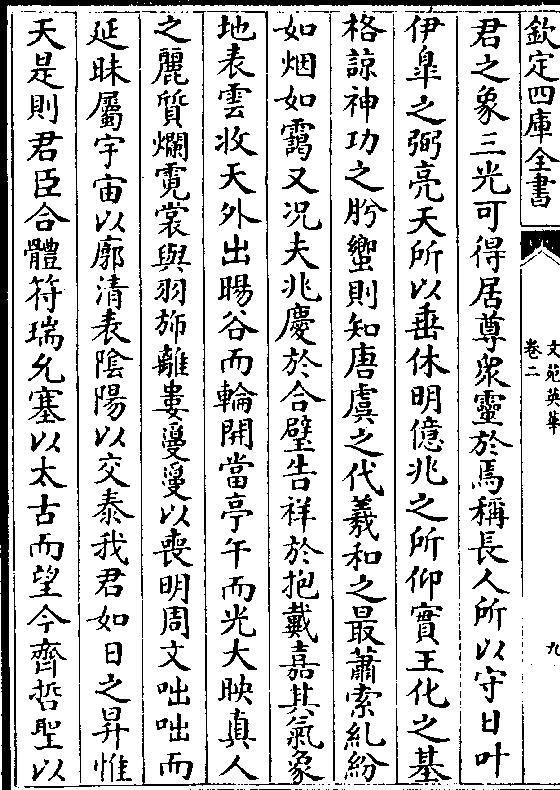 欽定四庫全書
文苑英華
卷二
九
君之象三光可得居尊衆靈於焉稱長人所以守日叶
伊臯之弼亮天所以垂休明億兆之所仰實王化之基
格諒神功之肸蠁則知唐虞之代羲和之最蕭索糺紛
如烟如靄又况夫兆慶於合璧告祥於抱戴嘉其氣象
地表雲收天外出暘谷而輪開當亭午而光大映真人
之麗質爛霓裳與羽斾離婁㬅㬅以喪明周文咄咄而
延昧屬宇宙以廓清表隂陽以交泰我君如日之昇惟
天是則君臣合體符瑞允塞以太古而望今齊哲聖以